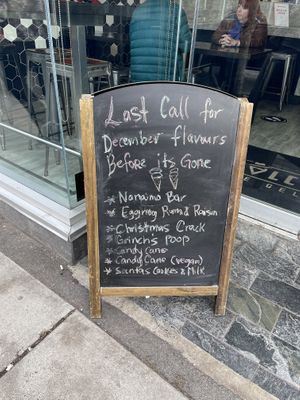 Last Call for
December flavours
Before its Gone
* Nanaimo Bar
* Eggnog Rum & Raisin
* Christmas Crack
* Grinch's Poop
* Candy Cane
* Candy Cane (vegan)
* Santas Cookies & Milk